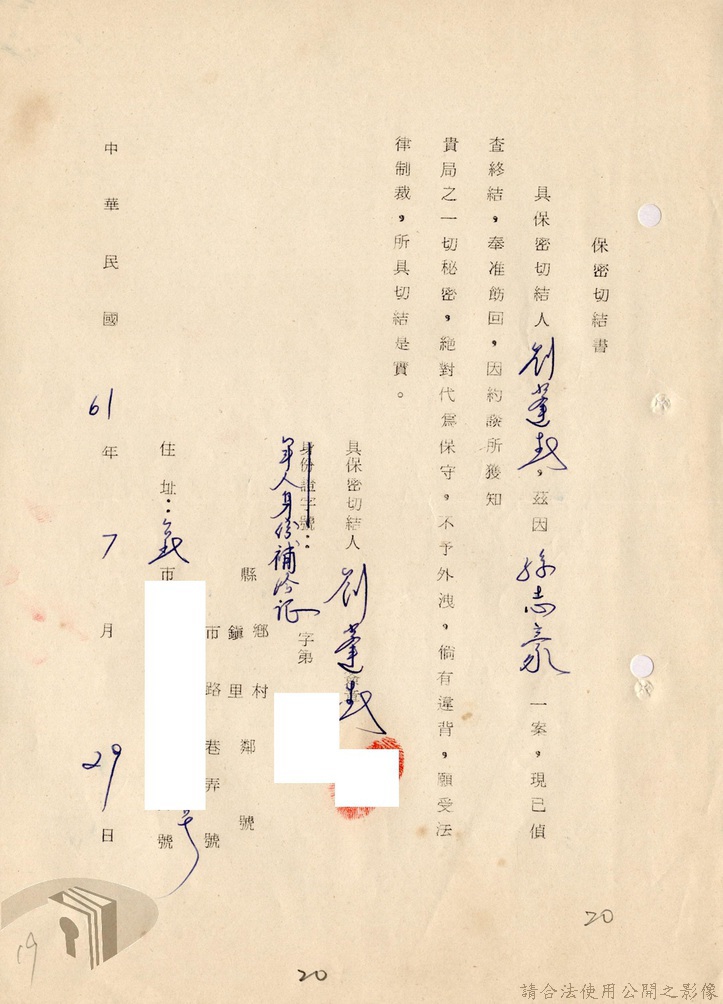 保密切結書
具保密切結人劉蓬春，茲因孫志豪一案，現已偵
查終結，奉准飭回，因約談所獲知
貴局之一切秘密，絕對代為保守，不予外洩，倘有違背，願受法
律制裁，所具切結是實。
具保密切結人 劉蓬春
身份證字號：字第
軍人身份補給證
縣 鄉村 鄰 號
市 鎮里 路 巷 弄 號
住址： 市 號
中華民國61年7月29日
20
20
19
請合法使用公開之影像